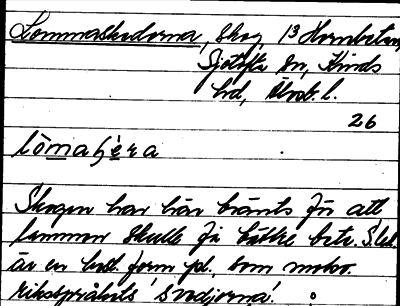 Lommaskedorna, skog, 13 Hornbetan,
Sjötofta sn, Kinds
hd, Älvsb. l.
26
lòmaʃèra
Skogen har här bränts för att
lammen skulle få bättre bete. S. led.
är en best. form pl. som motsv.
rikspråkets 'svedjorna'.